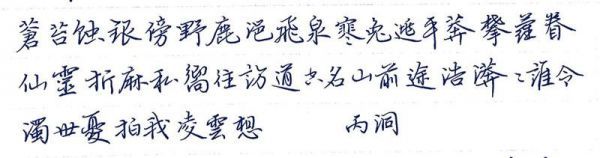 蒼苔蚀琅傍野鹿浥飛泉寒兔平莽攀蘿眷
仙靈折麻私嚮往訪道名山前途浩漭〻誰令
濁世憂拍我凌雲想 丙洞